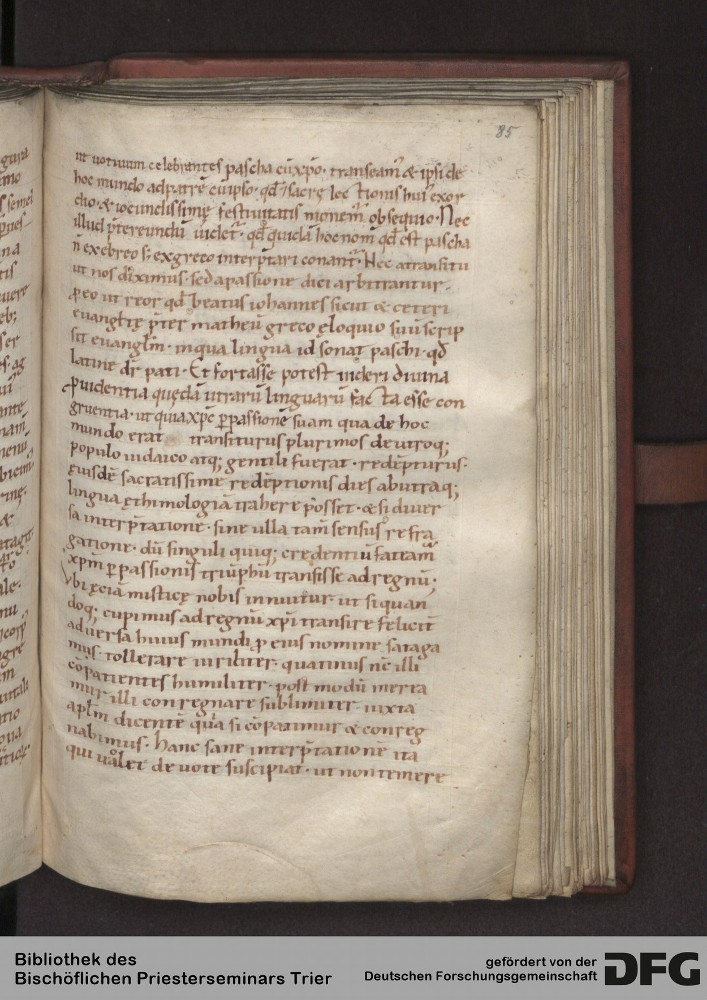 85
ut uotiuum celebrantes pascha cũ xp̃o· transeam᾽ & ipsi de
hoc mundo ad patrẽ cũ ipso· qđ sacrę lectionis hui᾽ exor
dio· & iocundissimę festiuitatis monem᾽ obsequio· Nec
illud p̃tereundũ uidet᾽· qđ quidã hoc nom̃ qđ est pascha
ñ ex ebreo s; ex greco interp̃tari conant᾽· Nec a transitu
ut nos diximus· sed a passione dici arbitrantur·
ꝓ eo ut reor qđ beatus iohannes sicut & ceteri
euangłię p̃ter matheũ greco ęloquio suũ scrip
sit euangłm· in qua lingua id sonat paschi· qđ
latine dr̃ pati· Et fortasse potest uideri diuina
ꝓuidentia quędã utrarũ linguarũ facta esse con
gruentia· ut quia xp̃c ꝑ passionẽ suam qua de hoc
mundo erat transiturus plurimos de utroq;
populo iudaico atq; gentili fuerat redẽpturus·
ęiusdẽ sacratissime redẽptionis dies ab utraq;
lingua ęthimologiã trahere posset· & si diuer
sa interp̃tatione· sine ulla tam̃ sensus refra
gatione· dũ singuli quiq; credentiũ fateam᾽
xp̃m ꝑ passionis triũphũ transisse ad regnũ;
Vbi &iã misticę nobis innuitur· ut si quan
doq; cupimus ad regnũ xp̃i transire felicit᾽
aduersa huius mundi ꝓ eius nomine sataga
mus· tollerare uiriliter· quatinus nc̃ illi
cõpatientes humiliter· post modũ merea
mur illi conregnare sublimiter· iuxta
apłm dicentẽ quia si cõpatimur & conreg
nabimus· hanc sane interp̃tationẽ ita
qui uolet deuote suscipiat· ut non temere
Bibliothek des
Bischöflichen Priesterseminars Trier
gefördert von der
Deutschen Forschungsgemeinschaft
DFG